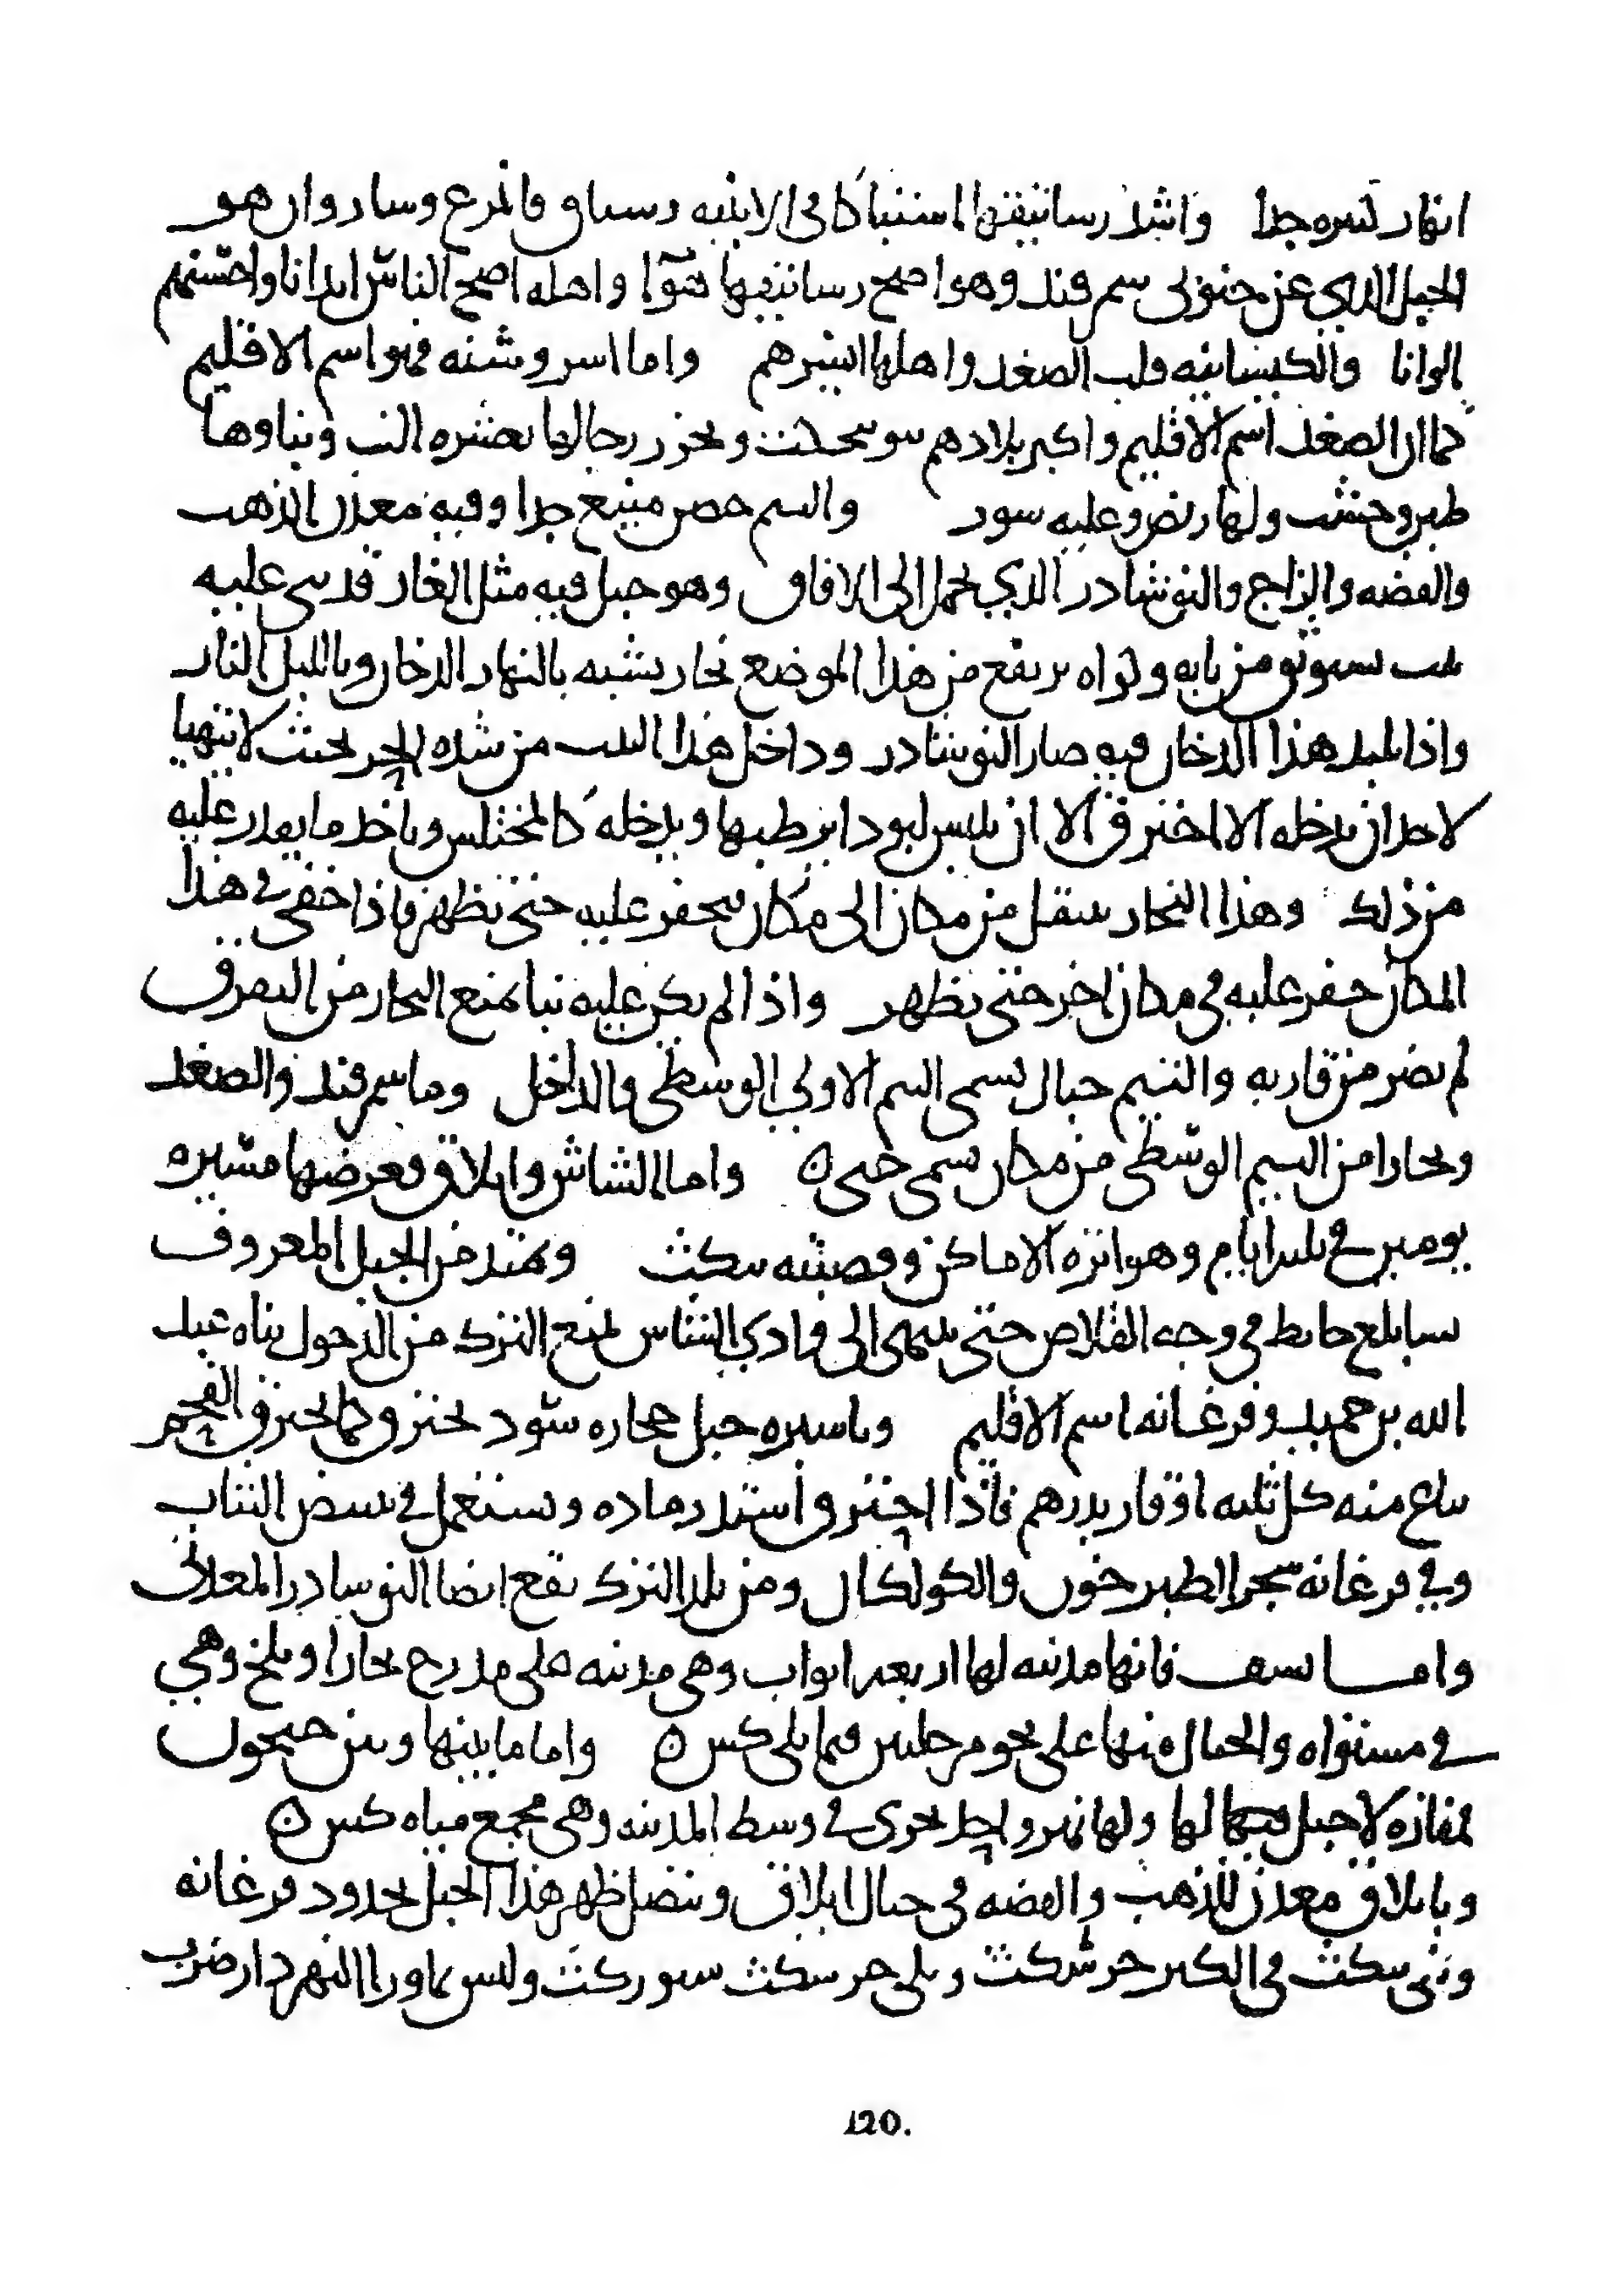 انهار كثيره جدا واشد رساتيقها اشتباكا في الابنيه وبساتين والمزارع وساودار هو
الجبل الذي عن جنوبي سمرقند وهو اصح رساتيقها هوآ واهله اصح الناس ابدانا واحسنهم
الوانا والكيشانيه قلب الصغد واهلها ايسرهم واما اسروشنه فهو اسم الاقليم
كما ان الصغد اسم الاقليم واكبر بلادهم ويحزر رجالها بعشره الف وبناوها
طين وخشب ولها ربض وعليه سور والبتم حصن منيع جدا وفيه معدن الذهب
والفضه والزاج والنوشادر الذي يحمل الى الافاق وهو جبل فيه مثل الغار قد بني عليه
بيت يستوثق من بابه وكواه يرتفع من هذا الموضع بخار يشبه بالنهار الدخان وبالليل النار
واذا تلبد هذا الدخان فيه صار النوشادر وداخل هذا البيت من شده الحر بحيث لا يتهيا
لاحد ان يدخله الا احترق الا ان يلبس لبودا يرطبها ويدخله كالمختلس وياخذ ما يقدر عليه
من ذلك وهذا البخار ينتقل من مكان الى مكان فيحفر عليه حتى يظهر فاذا خفي في هذا
المكان حفر عليه في مكان اخر حتى يظهر واذا لم يكن عليه بنا يمنع البخار من التفرق
لم يضر من قاربه والبتم جبال تسمى البتم الاولى الوسطى والداخل وما سمرقند والصغد
وبخارا من البتم الوسطى من مكان يسمى جى ه واما الشاش وايلاق فعرضها مسيره
يومين في ثلثه ايام وهو انزه الاماكن وقصبته بنكث ويمتد من الجبل المعروف
سابلغ حايط في وجه القلاص حتى ينتهى الى وادي الشاش لمنع الترك من الدخول بناه عبد
الله بن حميد وفرغانه اسم الاقليم وباسبره جبل حجاره سود تحترق كما يحترق الفحم
يباع منه كل ثلثه اوقار بدرهم فاذا احترق اشتد رماده ويستعمل في تبييض الثياب
وفي فرغانه شجر الطبرخون والكولكان ومن بلد الترك يقع ايضا النوشادر المعدني
واما نسف فانها مدينه لها اربعه ابواب وهي مدينه على مدرج بخارا وبلخ وهي
في مستواه والجبال منها على نحو مرحلتين فيما يلي كس ه واما ما بينها وبين جيحون
فمفازه لا جبل فيها لها ولها نهر واحد يجري في وسط المدينه وهي مجمع مياه كس ه
وبايلاق معدن للذهب والفضه في جبال ايلاق ويتصل ظهر هذا الجبل بحدود فرغانه
وتلى بنكث في الكبر خرشكث ويلى خرشكث ستوركث وليس بماورا النهر دار ضرب
120.